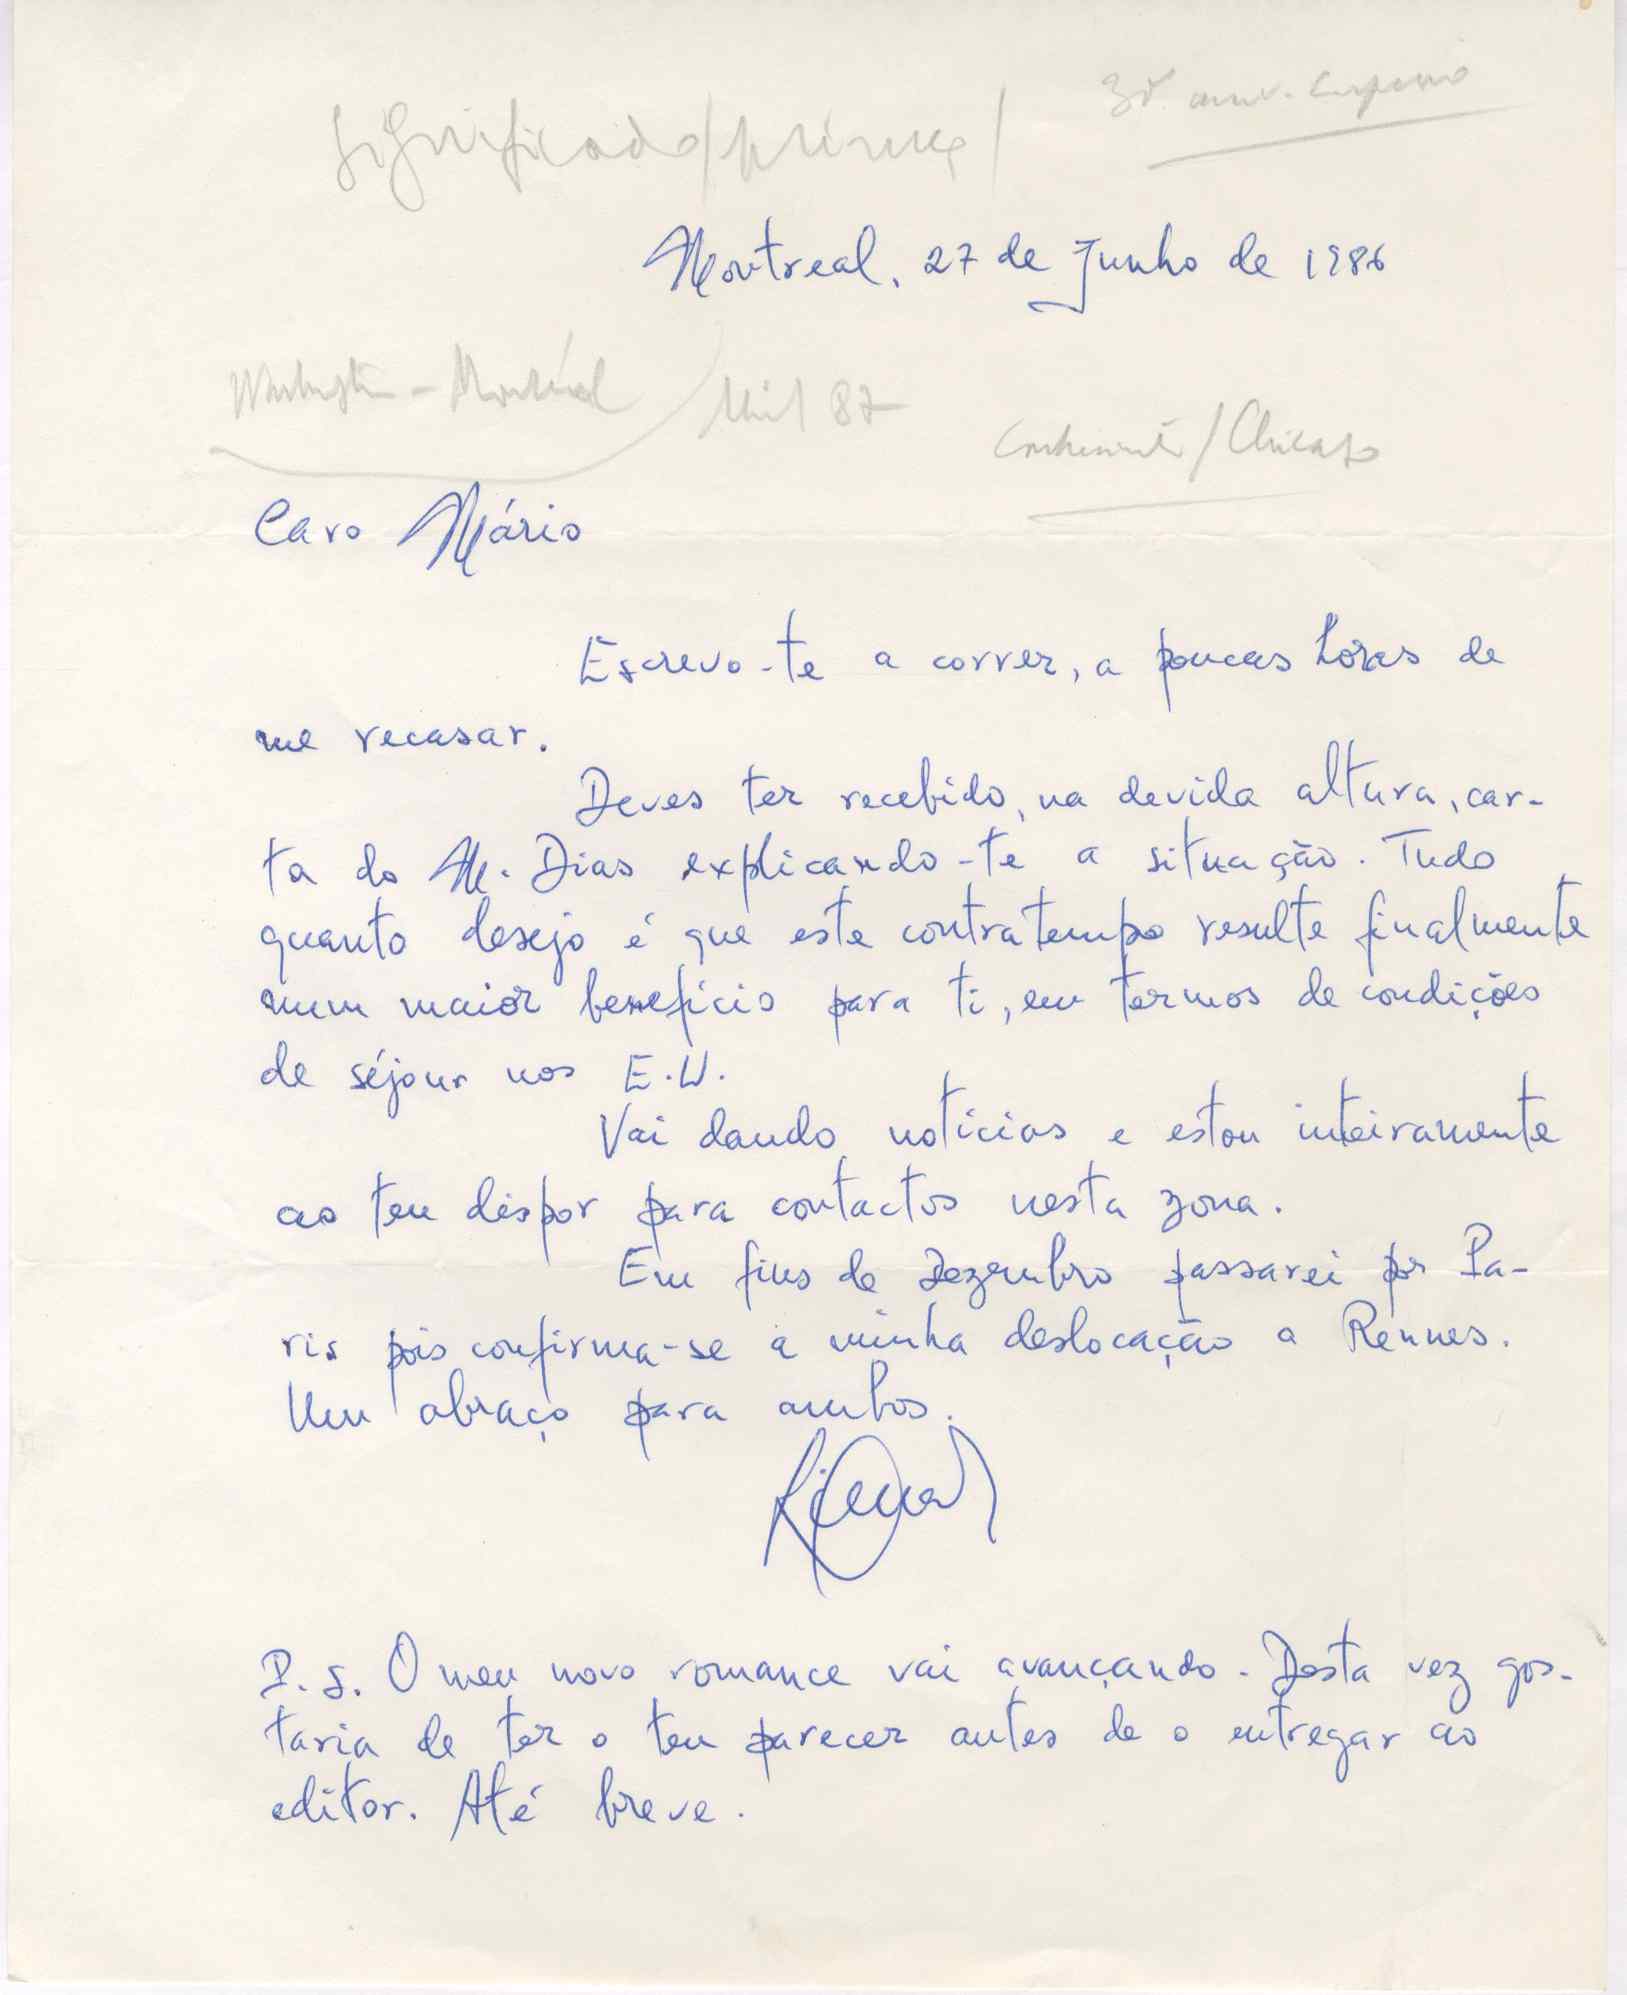 significado/
Montreal, 27 de Junho de 1986
Washington - Montréal / Abril 87
/ Chicago
Caro Mário
Escrevo-te a correr, a poucas horas de
me recasar.
Deves ter recebido, na devida altura, car-
ta do M. Dias explicando-te a situação. Tudo
quanto desejo é que este contratempo resulte finalmente
num maior benefício para ti, em termos de condições
de séjour nos E.U.
Vai dando notícias e estou inteiramente
ao teu dispor para contactos nesta zona.
Em fins de Dezembro passarei por Pa-
ris pois confirma-se a minha deslocação a Rennes.
Um abraço para ambos.
P.S. O meu novo romance vai avançando. Desta vez gos-
taria de ter o teu parecer antes de o entregar ao
editor. Até breve.